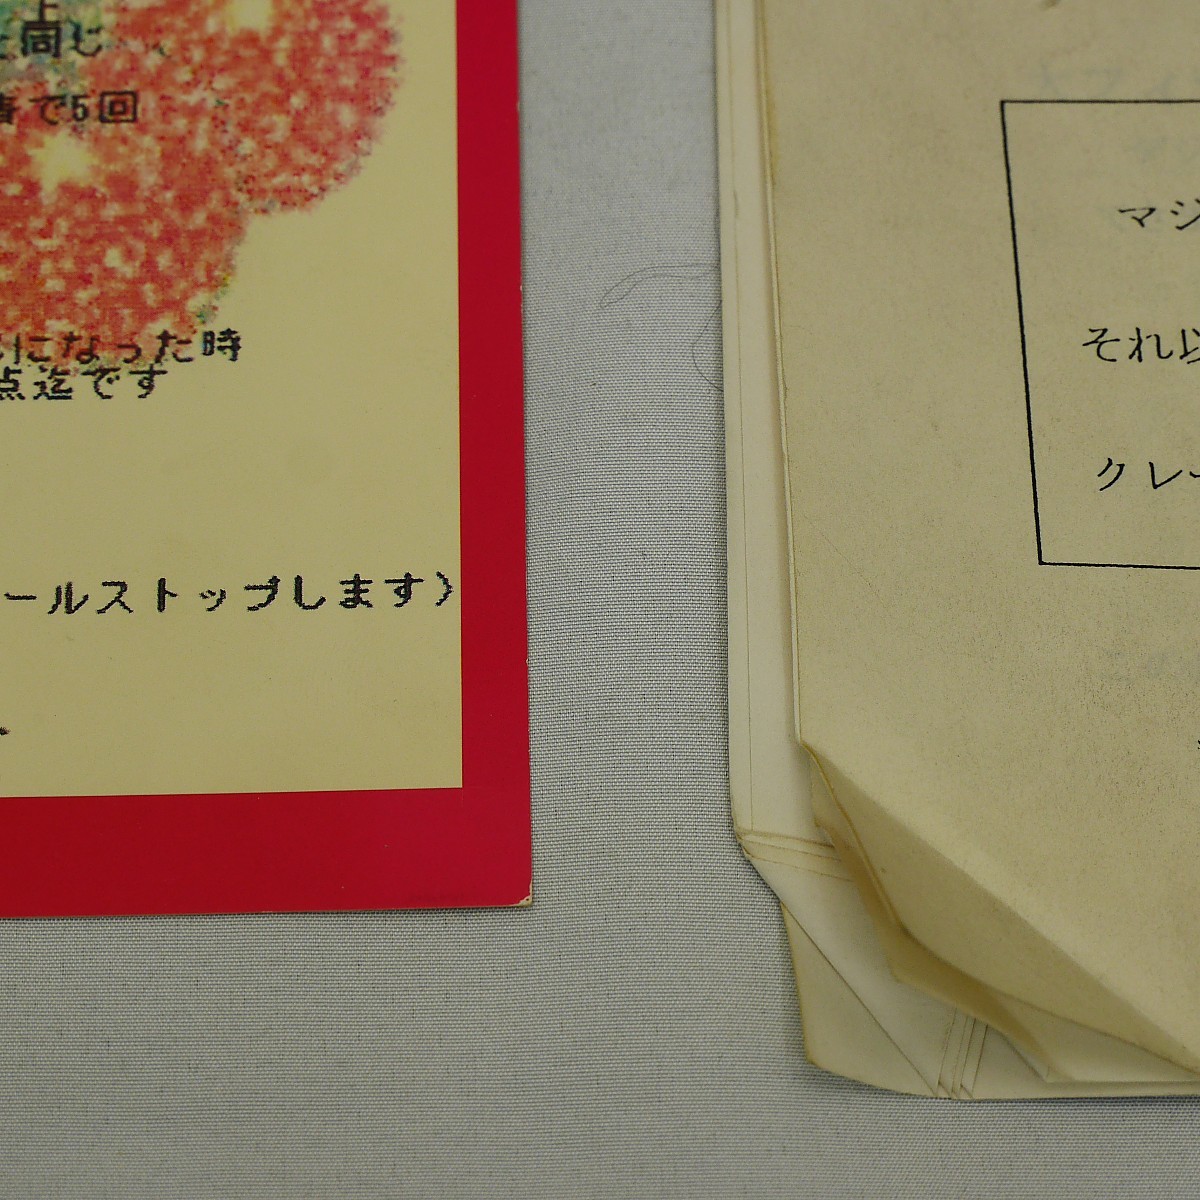 上
と同じ
着で5回
になった時
点迄です
ールストップします)
マジ
それ以
クレー